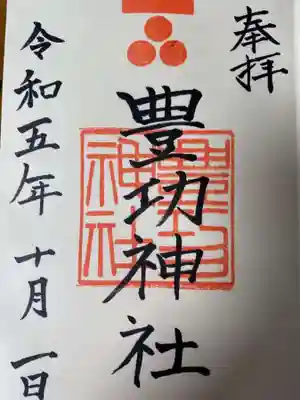 奉拝
豊功神社
豊功神社
令和五年 十月 一日